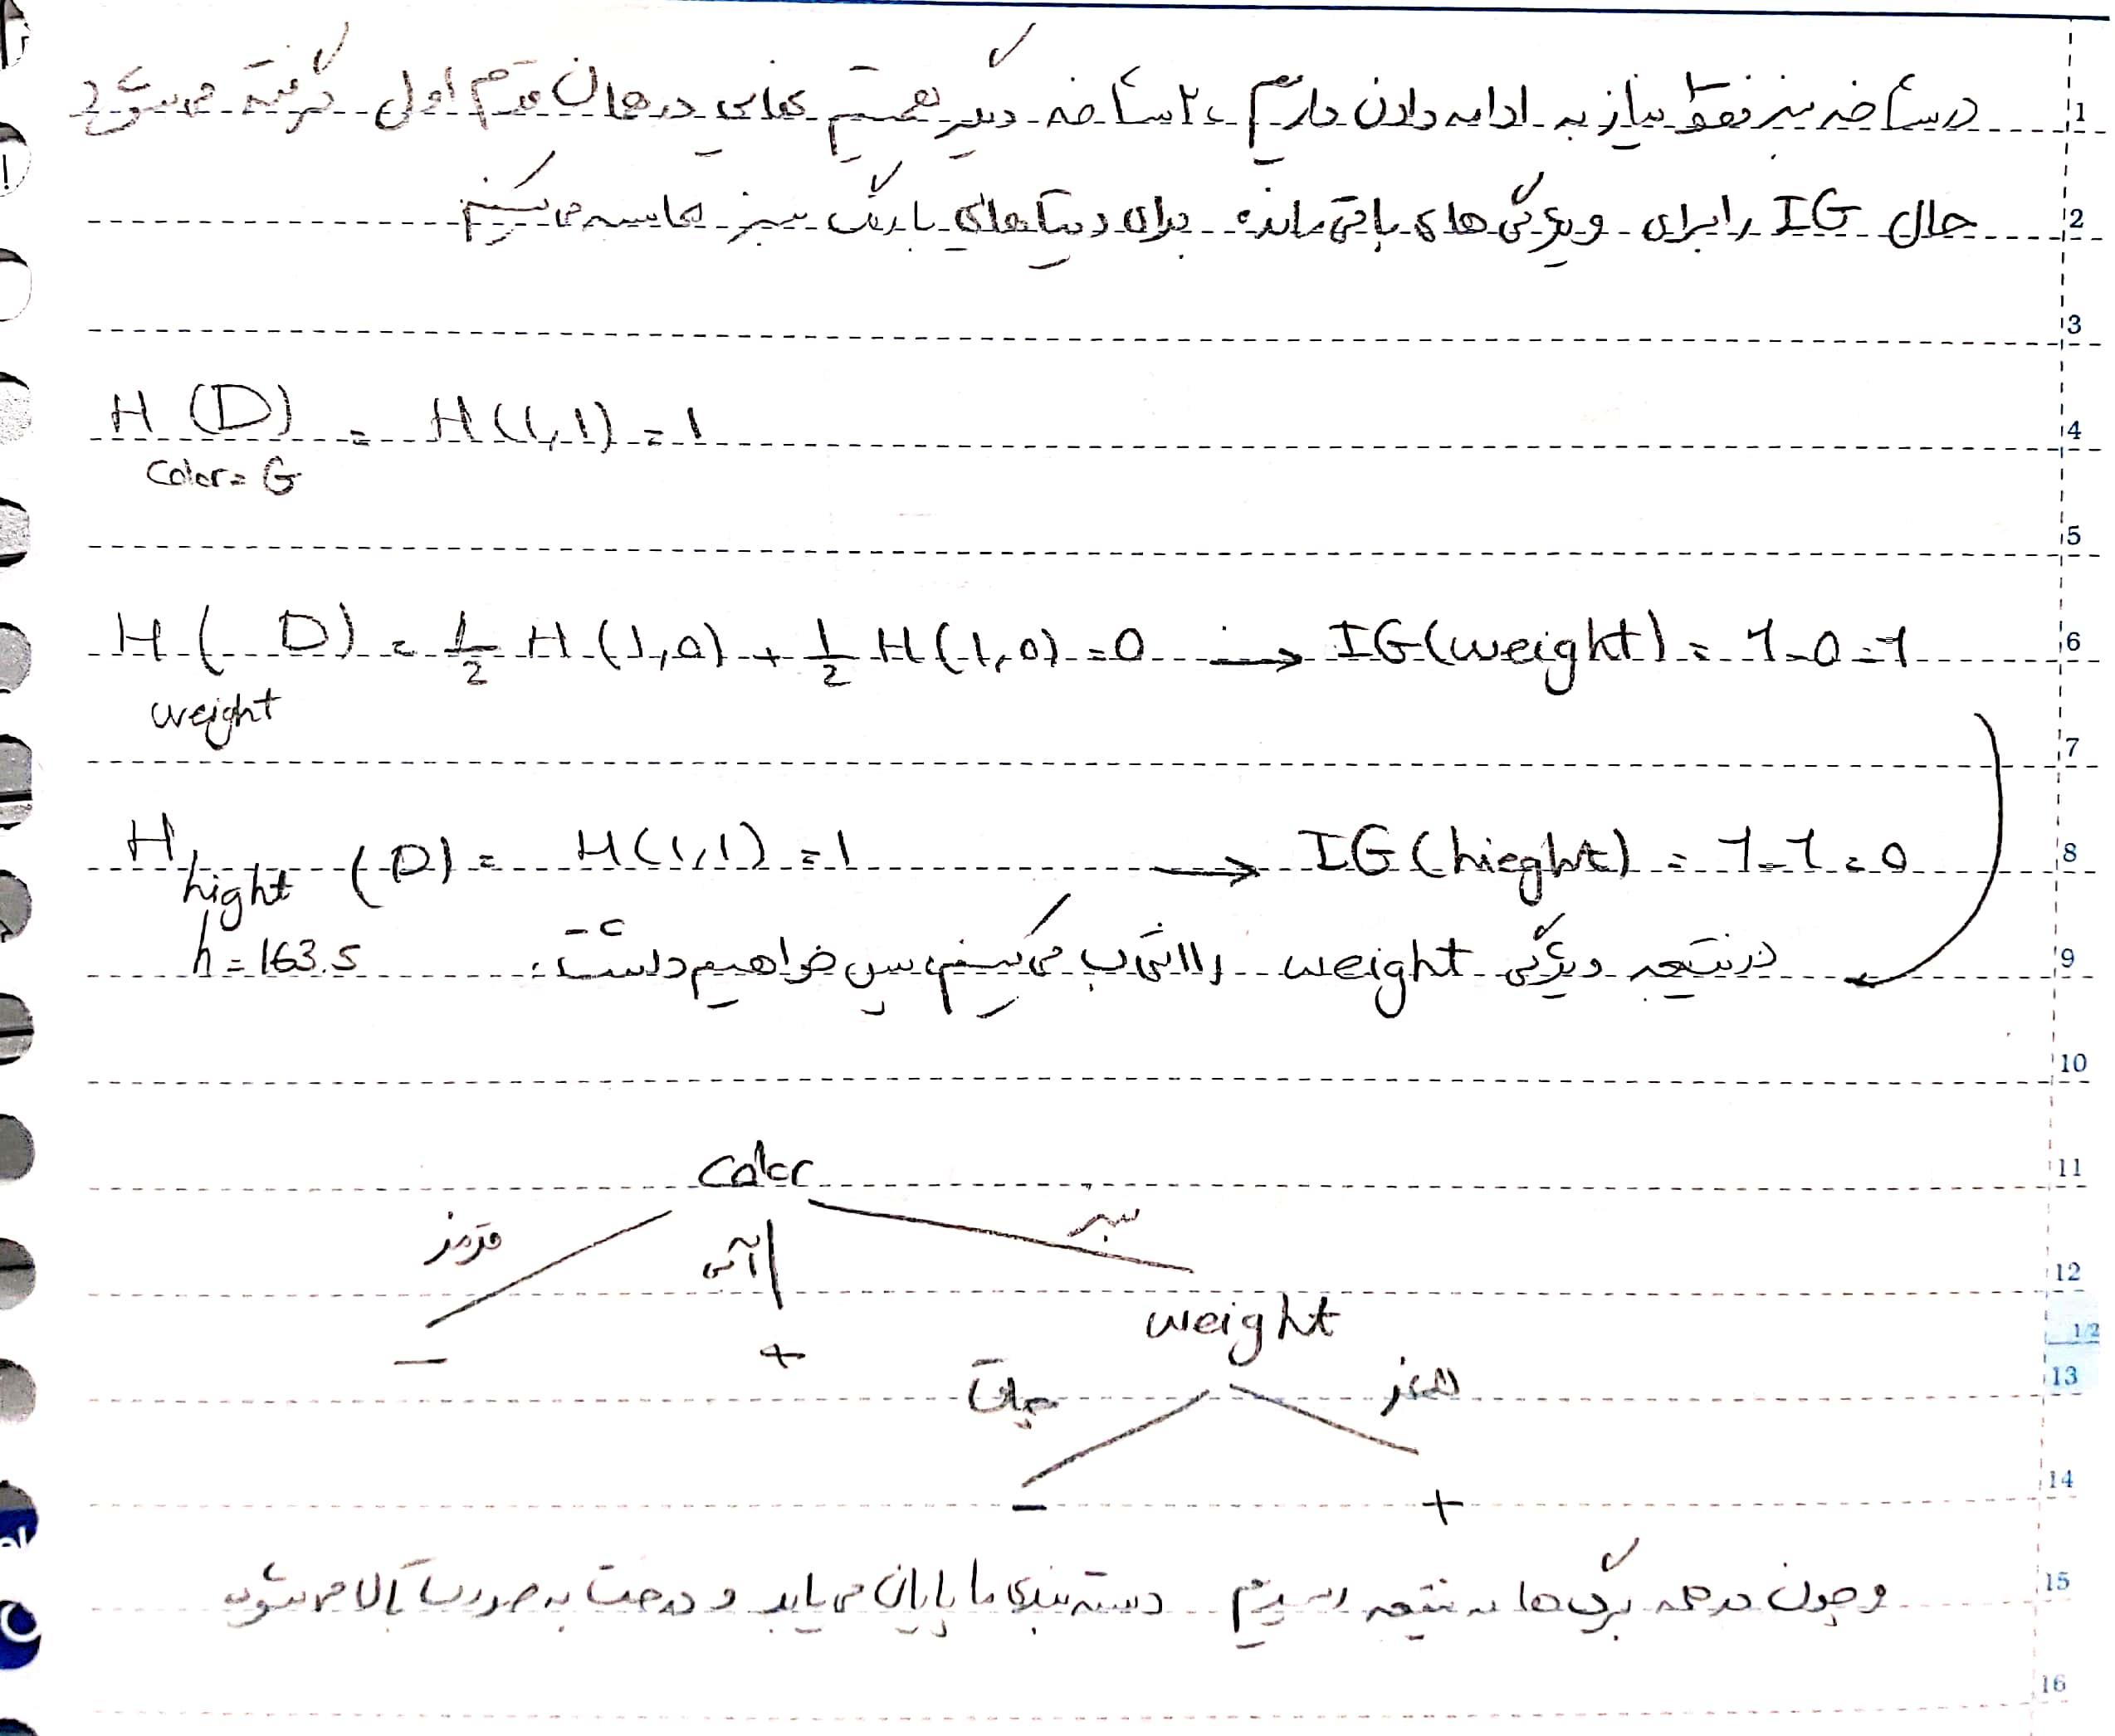 در شاخه سبز فقط نیاز به ادامه دادن داریم ، ۲ شاخه دیگر تصمیم نهایی در همان قدم اول گرفته می‌شود
حال IG را برای ویژگی های باقی مانده برای دیتاهای با رنگ سبز محاسبه می کنیم
H (D) = H(1,1) = 1
Color = G
H ( D) = 1/2 H (1,0) + 1/2 H (1,0) = 0 → IG(weight) = 1-0=1
weight
H hight (D) = H(1,1) = 1 → IG (hieght) = 1-1=0
h = 163.5
در نتیجه ویژگی weight را انتخاب می کنیم پس خواهیم داشت :
Color
قرمز آبی سبز
weight
- +
چاق لاغر
- +
و چون در همه برگ ها به نتیجه رسیدیم دسته بندی ما پایان می یابد و درخت به صورت بالا می شود
1
2
3
4
5
6
7
8
9
10
11
12
1/2
13
14
15
16